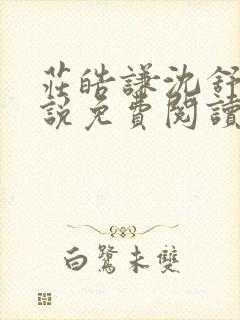 莊皓謙沈舒
說免費閱讀
白鷺未雙